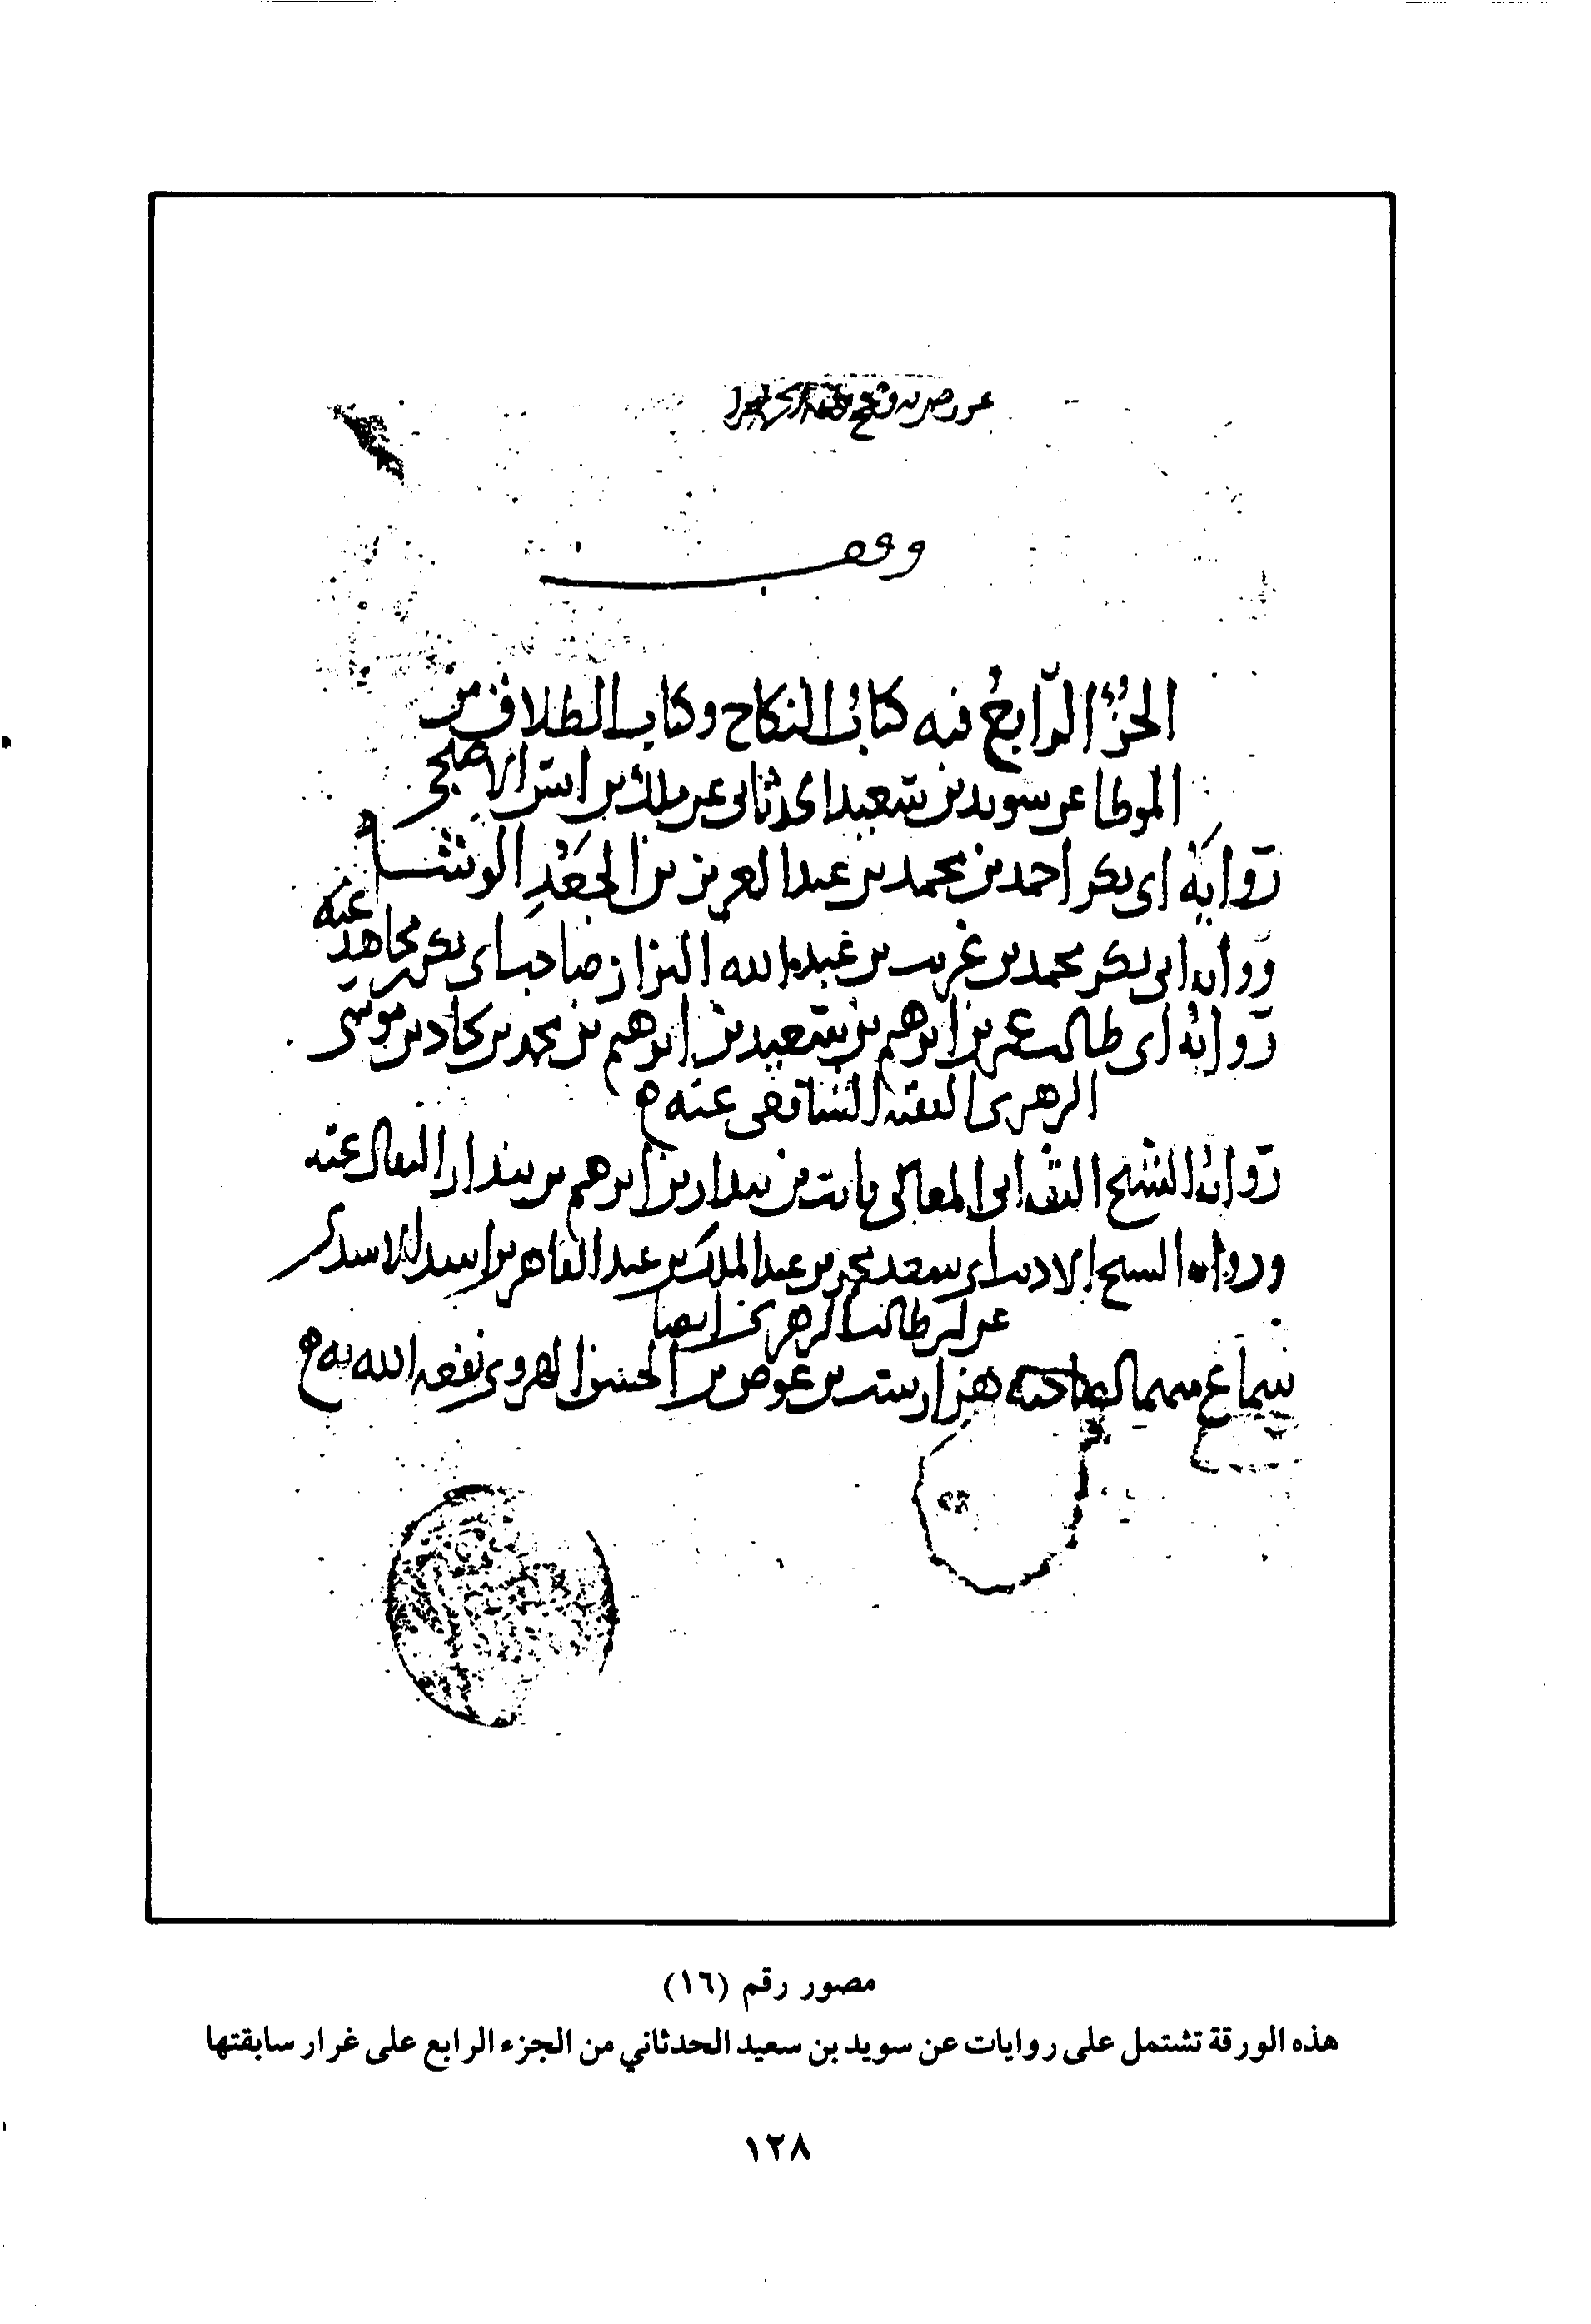 وقف
الجزء الرابع فيه كتاب النكاح وكتاب الطلاق من
الموطا عن سويد بن سعيد الحدثاني عن ملك بن انس الاصبحي
رواية ابي بكر احمد بن محمد بن عبد العزيز بن الجعد الوشا
ورواية ابي بكر محمد بن غريب بن عبد الله البزاز صاحب ابي بكر بن مجاهد عنه
رواية ابي طالب عمر بن ابرهيم بن سعيد بن ابرهيم بن محمد بن بجاد بن موسى
الزهري الفقيه الشافعي عنه
رواية الشيخ الثقة ابي المعالي ثابت بن بندار بن ابرهيم بن بندار البقال عنه
ورواية الشيخ الاديب ابي سعد محمد بن عبد الملك بن عبد القاهر بن اسد الاسدي
عن ابي طالب الزهري ايضا
سماع لصاحبه هزارست بن عوض بن الحسن الهروي نفعه الله به
مصور رقم (١٦)
هذه الورقة تشتمل على روايات عن سويد بن سعيد الحدثاني من الجزء الرابع على غرار سابقتها
١٢٨